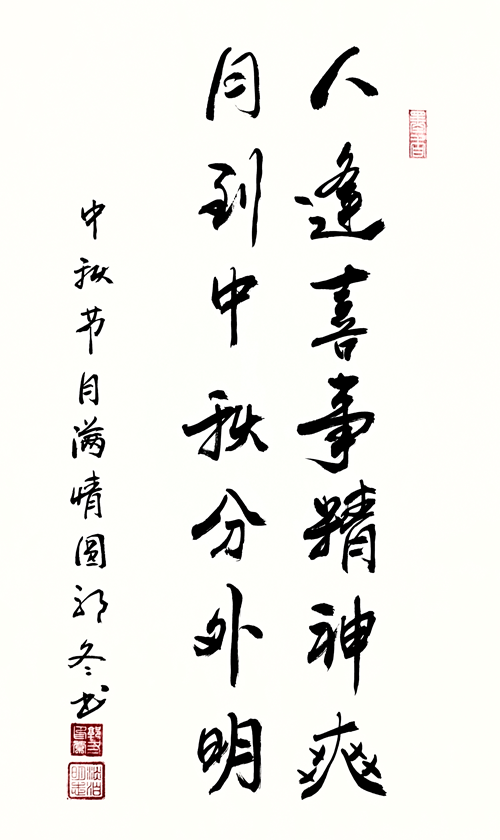 人逢喜事精神爽
月到中秋分外明
中秋节月满情圆郭冬书